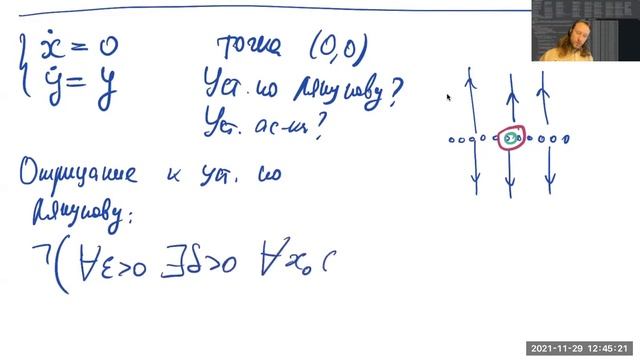 { ẋ = 0
ẏ = y
точка (0,0)
Уст. по Ляпунову?
Уст. ас-ки?
Отрицание к уст. по
Ляпунову:
¬(∀ε>0 ∃δ>0 ∀x₀ (
2021-11-29 12:45:21